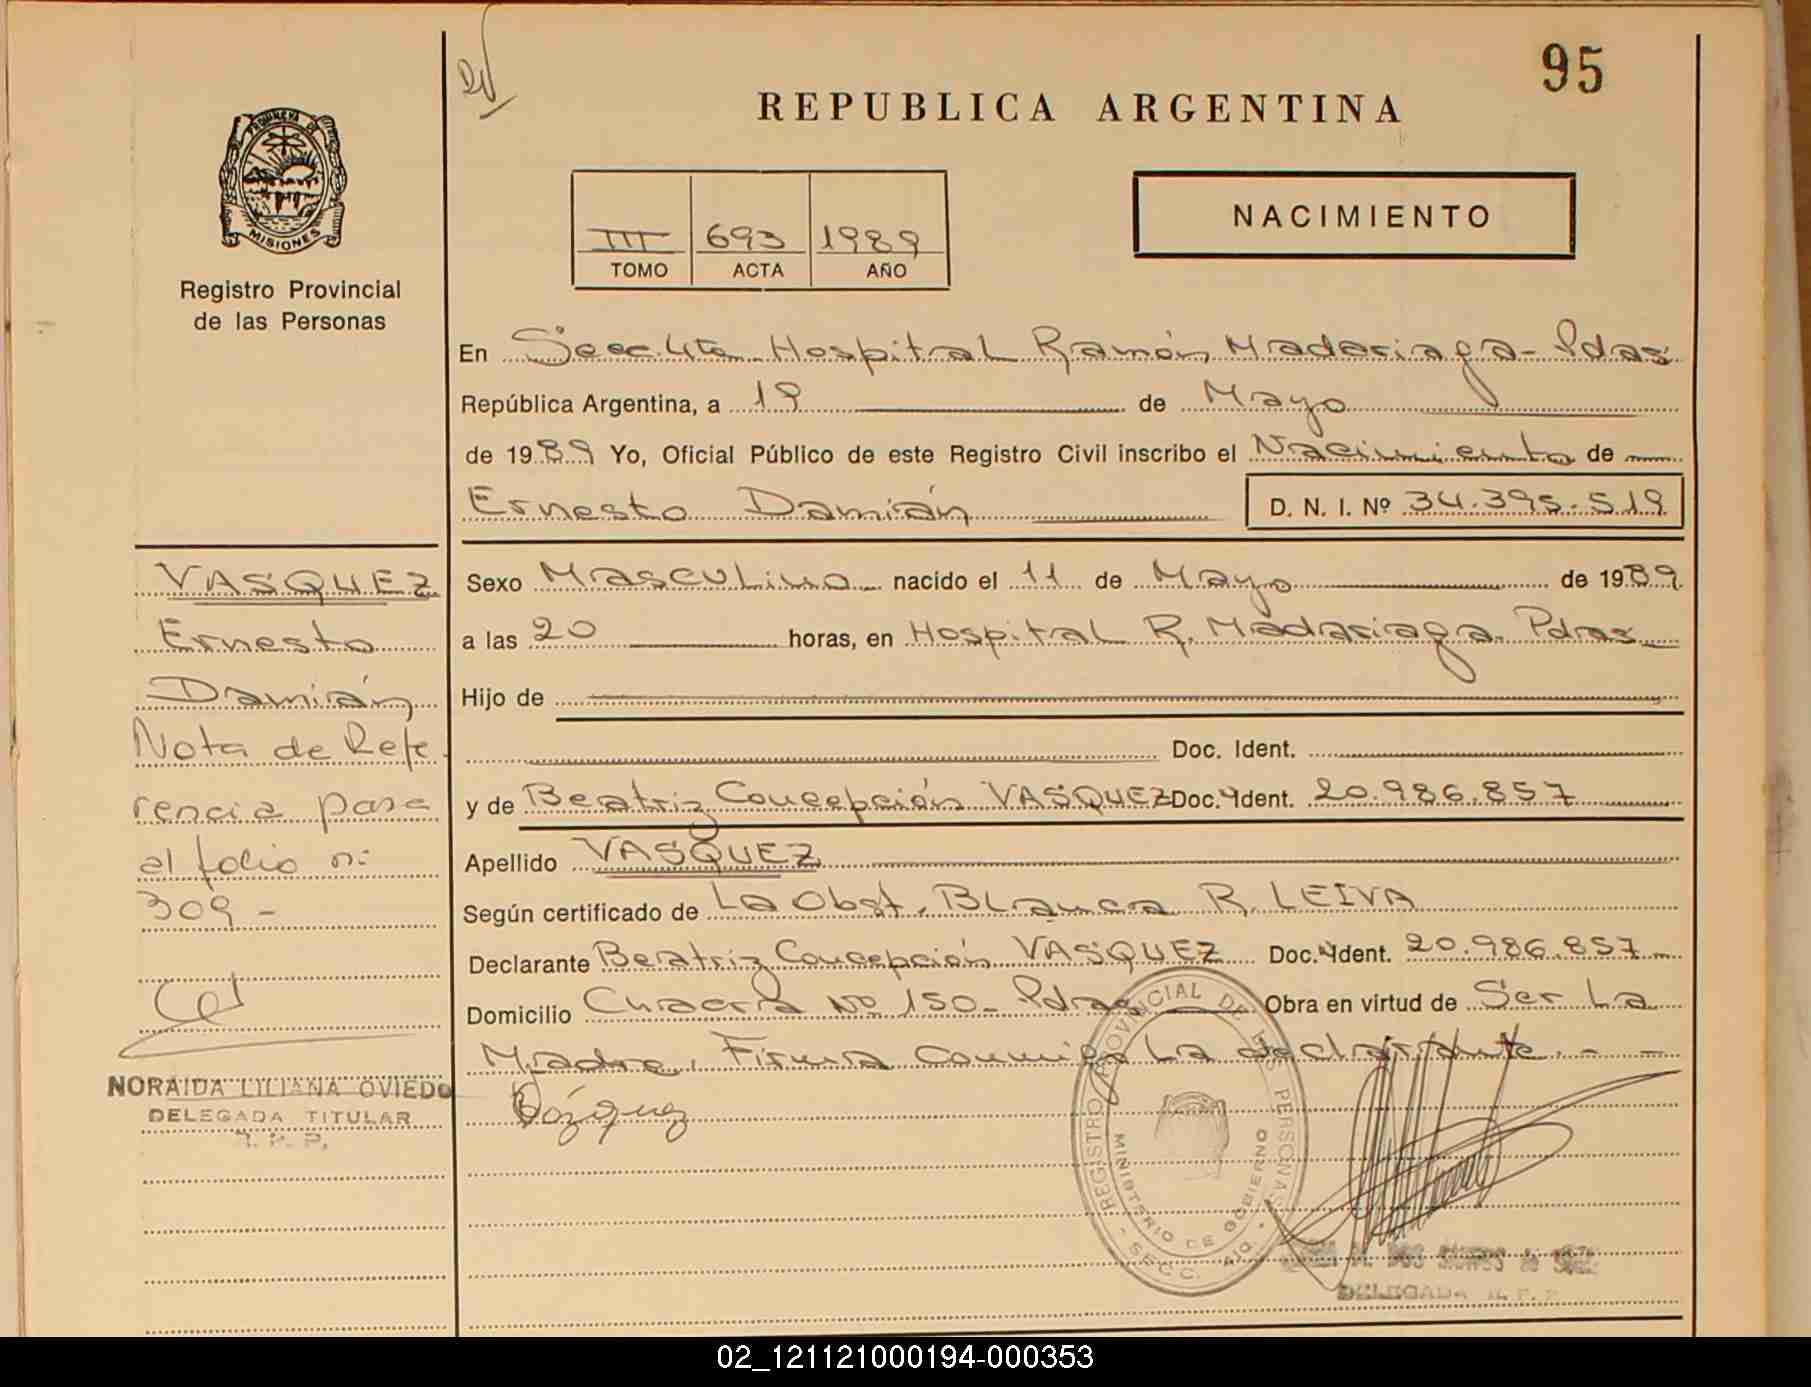 95
REPUBLICA ARGENTINA
PROVINCIA DE
MISIONES
Registro Provincial
de las Personas
III 693 1989
TOMO ACTA AÑO
NACIMIENTO
En Secc. 4ta. Hospital Ramón Madariaga - Pdas
República Argentina, a 19 de Mayo
de 1989 Yo, Oficial Público de este Registro Civil inscribo el Nacimiento de
Ernesto Damián D. N. I. Nº 34.395.519
Sexo Masculino nacido el 11 de Mayo de 1989
a las 20 horas, en Hospital R. Madariaga. Pdas
Hijo de
Doc. Ident.
y de Beatriz Concepción VASQUEZ Doc. Ident. 20.986.857
Apellido VASQUEZ
Según certificado de La Obst. Blanca R. LEIVA
Declarante Beatriz Concepción VASQUEZ Doc. Ident. 20.986.857
Domicilio Chacra Nº 150- Pdas Obra en virtud de Ser La
Madre, Firma conmigo La declarante. - -
Vázquez
VASQUEZ
Ernesto
Damián
Nota de Refe
rencia pase
al folio n:
309 -
NORAIDA LILIANA OVIEDO
DELEGADA TITULAR
R. P. P.
REGISTRO PROVINCIAL DE LAS PERSONAS
MINISTERIO DE GOBIERNO
SECC.
DOS SANTOS de
DELEGADA R. P. P.
02_121121000194-000353